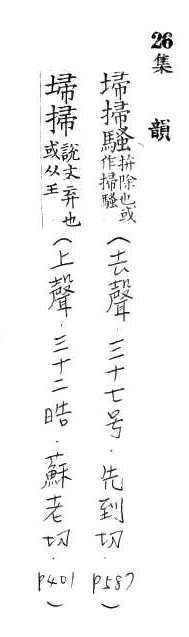 26集　韻
埽掃騷拚除也或作掃騷（去聲．三十七号．先到切．p587）
埽掃說文弃也或从王（上聲．三十二皓．蘇老切．p401）